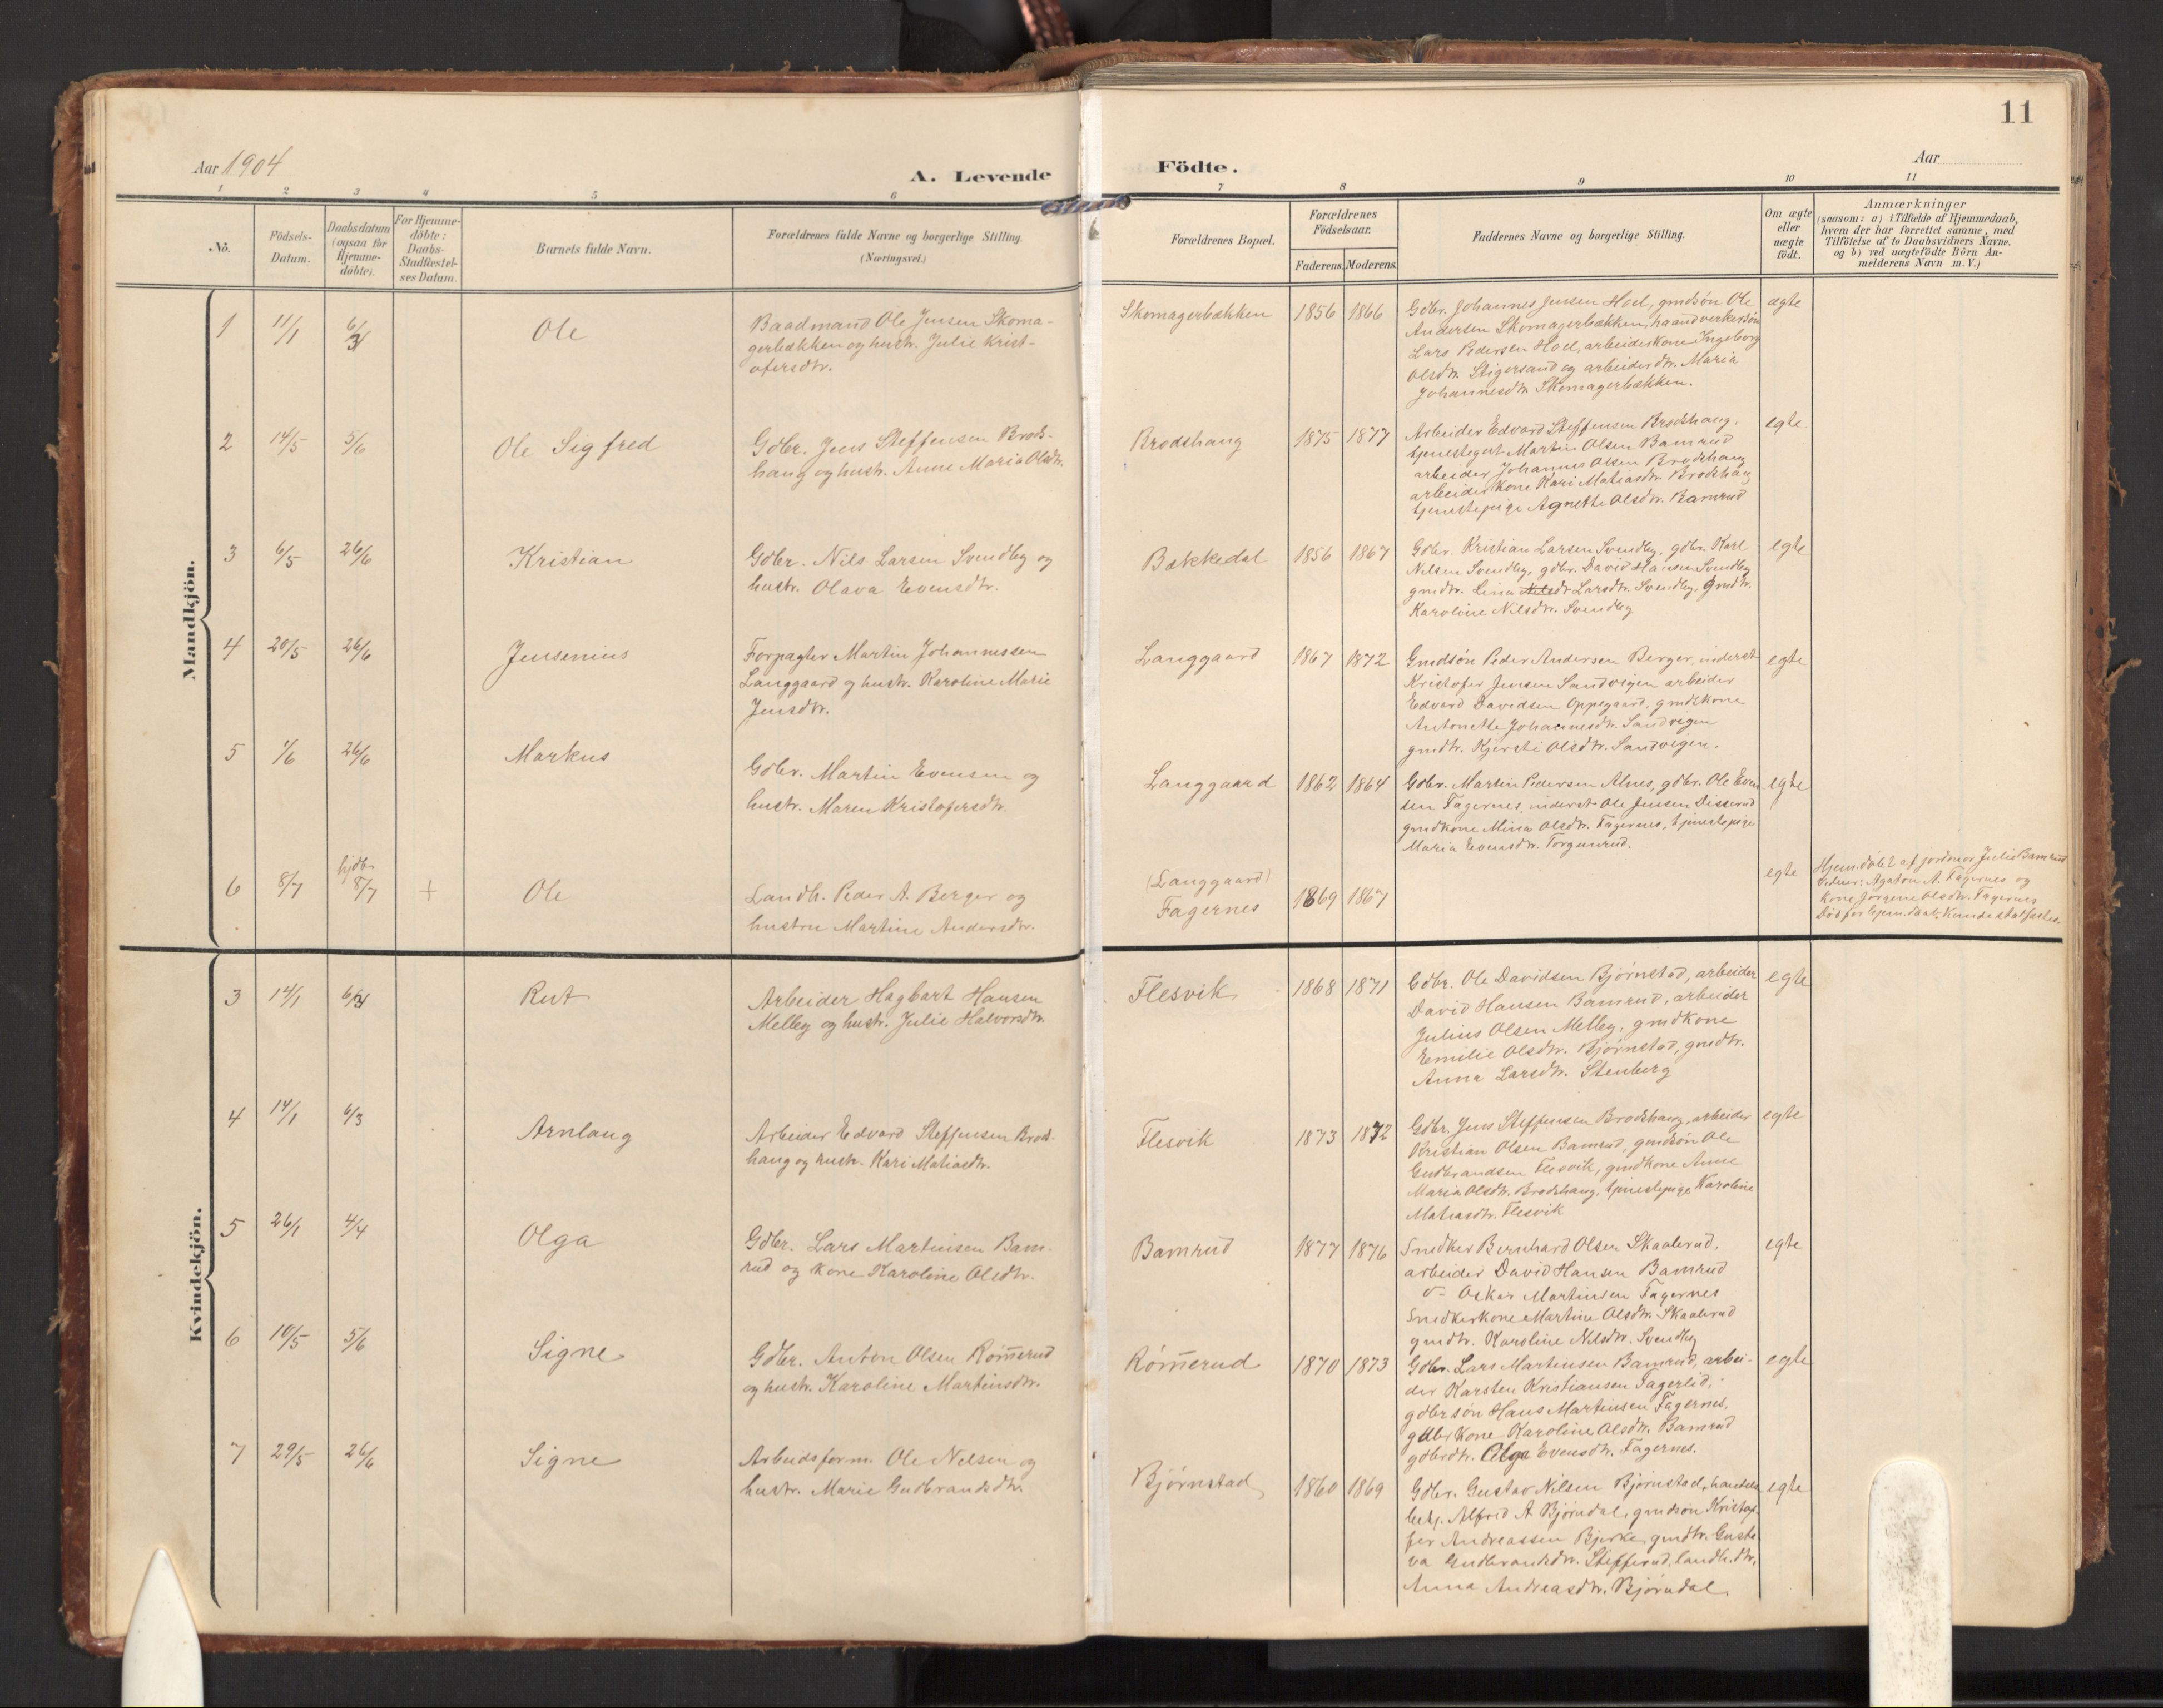 11
Aar 1904
A. Levende
Födte.
Aar
1 2 3 4 5 6 7 8 9 10 11
No.
Födsels-
Datum.
Daabsdatum
(ogsaa for
Hjemme-
döbte).
For Hjemme-
döbte:
Daabs-
Stadfæstel-
ses Datum.
Barnets fulde Navn.
Forældrenes fulde Navne og borgerlige Stilling.
(Næringsvei.)
Forældrenes Bopæl.
Forældrenes
Födselsaar.
Faderens.
Moderens.
Faddernes Navne og borgerlige Stilling.
Om ægte
eller
uægte
födt.
Anmærkninger
(saasom: a) i Tilfælde af Hjemmedaab,
hvem der har forrettet samme, med
Tilföielse af to Daabsvidners Navne.
og b) ved uægtefödte Börn An-
melderens Navn m. V.)
Mandkjön.
1 11/1 6/3 Ole
Baadmand Ole Jensen Skoma-
gerbækken og hustr. Julie Krist-
ofersdtr.
Skomagerbækken 1856 1866
Gdbr. Johannes Jensen Hoel, gmdsøn Ole
Andersen Skomagerbækken, haandverkersøn
Lars Pedersen Hoel, arbeiderkone Ingeborg
Olsdtr. Stigersand og arbeiderdtr. Maria
Johannesdtr. Skomagerbækken.
ægte
2 14/5 5/6 Ole Sigfred
Gdbr. Jens Steffensen Brods-
haug og hustr. Anne Maria Olsdtr.
Brodshaug 1875 1877
Arbeider Edvard Steffensen Brodshaug,
tjenestegut Martin Olsen Bamrud
arbeider Johannes Olsen Brodshaug
arbeiderkone Kari Matiasdtr. Brodshaug
tjenestepige Agnette Olsdtr. Bamrud
egte
3 6/5 26/6 Kristian
Gdbr. Nils Larsen Svendby og
hustr. Olava Evensdtr.
Bækkedal 1856 1867
Gdbr. Kristian Larsen Svendby, gdbr. Karl
Nilsen Svendby, gdbr. David Hansen Svendby
gmdtr. Lina Larsdtr. Svendby, gmdtr.
Karoline Nilsdtr. Svendby
egte
4 20/5 26/6 Jensenius
Forpagter Martin Johannessen
Langgaard og hustr. Karoline Marie
Jensdtr.
Langgaard 1867 1872
Gmdsøn Peder Andersen Berger, inderst
Kristofer Jensen Sandvigen arbeider
Edvard Davidsen Oppegaard, gmdkone
Antonette Johannesdtr. Sandvigen
gmdtr. Kjersti Olsdtr. Sandvigen.
egte
5 1/6 26/6 Markus
Gdbr. Martin Evensen og
hustr. Maren Kristofersdtr.
Langgaard 1862 1864
Gdbr. Martin Pedersen Alnes, gdbr. Ole Even
sen Fagernes, inderst Ole Jensen Disserud
gmdkone Mina Olsdtr. Fagernes, tjenestepige
Maria Evensdtr. Torgunrud.
egte
6 8/7 hjdbt. 8/7 + Ole
Landh. Peder A. Berger og
hustru Martine Andersdtr.
(Langgaard)
Fagernes 1869 1867
egte
Hjemdøbt af jordmor Julie Bamrud
Vidner: Agaton A. Fagernes og
kone Jørgine Olsdtr. Fagernes
Død før hjem.daab. kunde stadfæstes.
Kvindekjön.
3 14/1 6/3 Rut
Arbeider Hagbart Hansen
Melby og hustr. Julie Halvorsdtr.
Flesvik 1868 1871
Gdbr. Ole Davidsen Bjørnstad, arbeider
David Hansen Bamrud, arbeider
Julius Olsen Melby, gmdkone
Emilie Olsdtr. Bjørnstad, gmdtr.
Anna Larsdtr. Stenberg
egte
4 14/1 6/3 Arnlaug
Arbeider Edvard Steffensen Brods-
haug og hustr. Kari Matiasdtr.
Flesvik 1873 1872
Gdbr. Jens Steffensen Brodshaug, arbeider
Kristian Olsen Bamrud, gmdsøn Ole
Gudbrandsen Flesvik, gmdkone Anne
Maria Olsdtr. Brodshaug, tjenestepige Karoline
Matiasdtr. Flesvik
egte
5 26/1 4/4 Olga
Gdbr. Lars Martinsen Bam-
rud og kone Karoline Olsdtr.
Bamrud 1877 1876
Snedker Bernhard Olsen Skaalerud,
arbeider David Hansen Bamrud
Oskar Martinsen Fagernes
Snedkerkone Martine Olsdtr. Skaalerud
gmdtr. Karoline Nilsdtr. Svendby
egte
6 10/5 5/6 Signe
Gdbr. Anton Olsen Rømerud
og hustr. Karoline Martinsdtr.
Rømerud 1870 1873
Gdbr. Lars Martinsen Bamrud, arbei-
der Karsten Kristiansen Fagerlid,
gdbrsøn Hans Martinsen Fagernes,
gdbrkone Karoline Olsdtr. Bamrud
gdbrdtr. Olga Evensdtr. Fagernes.
egte
7 29/5 26/6 Signe
Arbeidsform. Ole Nelsen og
hustr. Marie Gudbrandsdtr.
Bjørnstad 1860 1869
Gdbr. Gustav Nilsen Bjørnstad, handels
betj. Alfred A. Bjørndal, gmdsøn Kristof-
fer Andreassen Bjerke, gmdtr. Gusta-
va Gudbrandsdtr. Stefferud, landh.dtr.
Anna Andreasdtr. Bjørndal
egte